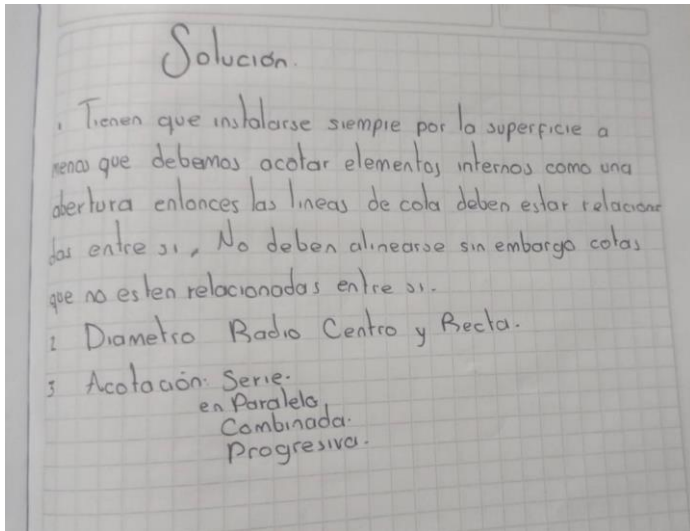 Solución.
. Tienen que instalarse siempre por la superficie a
menos que debemos acotar elementos internos como una
abertura entonces las lineas de cota deben estar relaciona
das entre si, No deben alinearse sin embargo cotas
que no esten relacionadas entre si.
2 Diametro Radio Centro y Recta.
3 Acotación: Serie.
en Paralelo,
Combinada.
Progresiva.